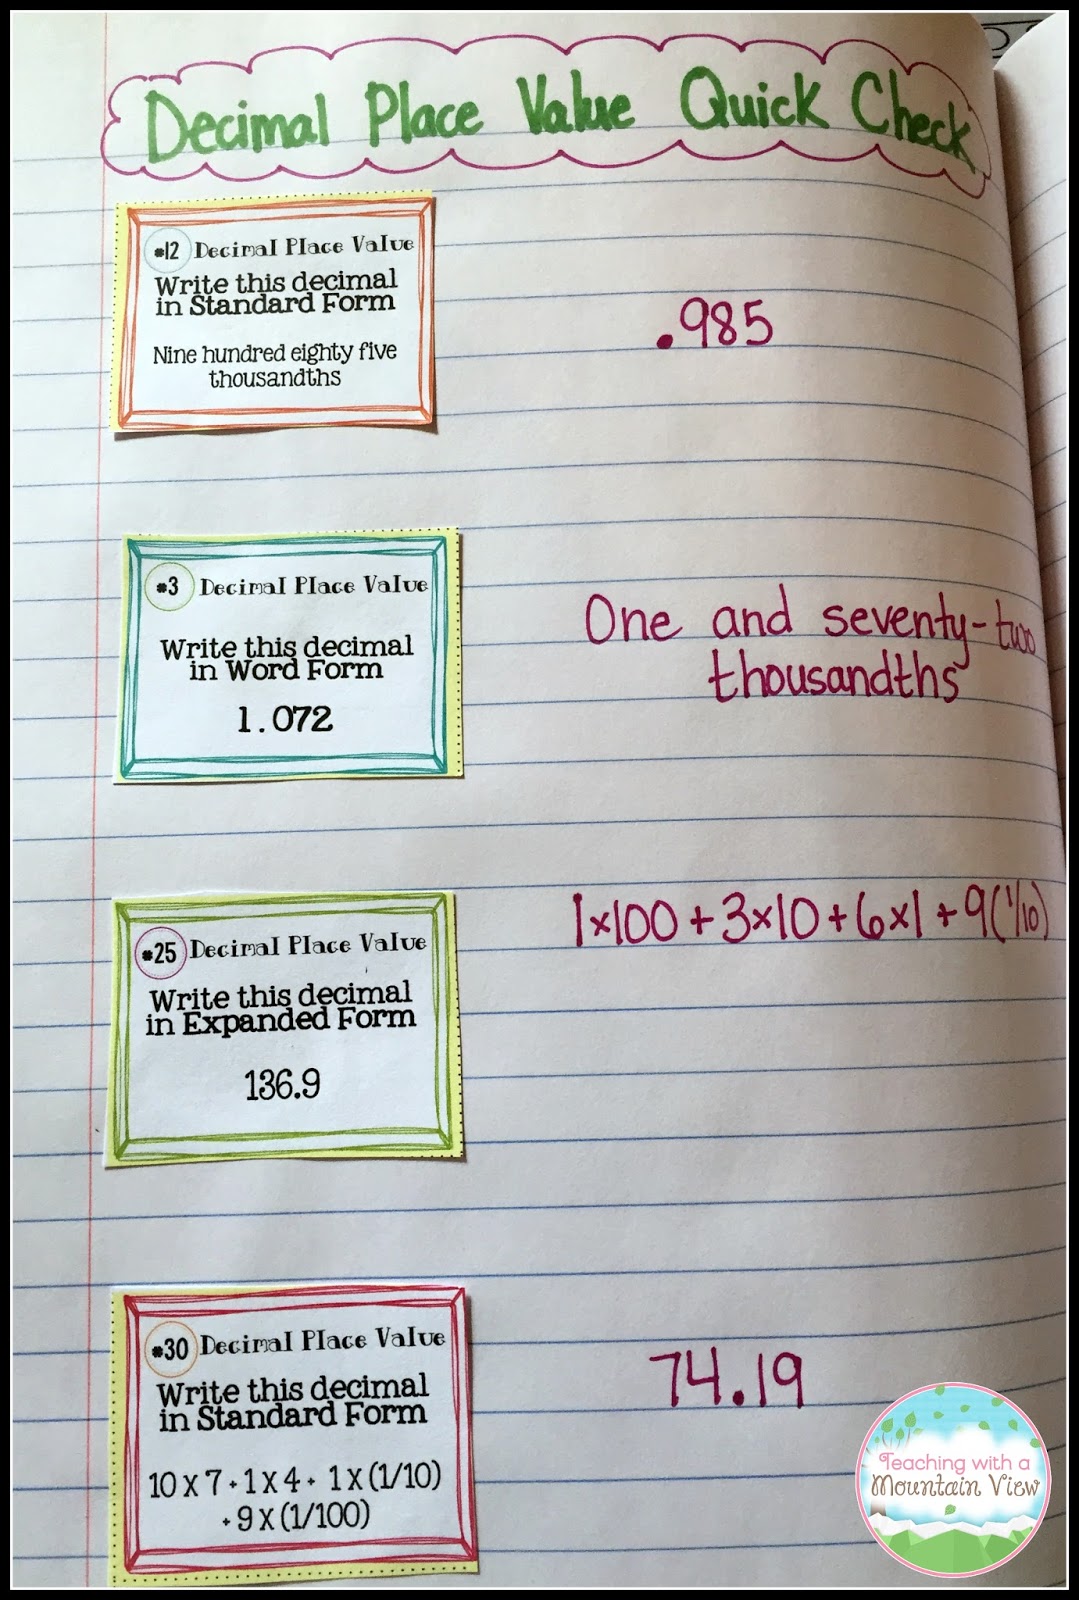 Decimal Place Value Quick Check
#12 Decimal Place Value
Write this decimal
in Standard Form
Nine hundred eighty five
thousandths
.985
#3 Decimal Place Value
Write this decimal
in Word Form
1.072
One and seventy-two
thousandths
#25 Decimal Place Value
Write this decimal
in Expanded Form
136.9
1x100 + 3x10 + 6x1 + 9(1/10)
#30 Decimal Place Value
Write this decimal
in Standard Form
10 X 7 + 1 X 4 + 1 X (1/10)
+ 9 X (1/100)
74.19
Teaching with a
Mountain View